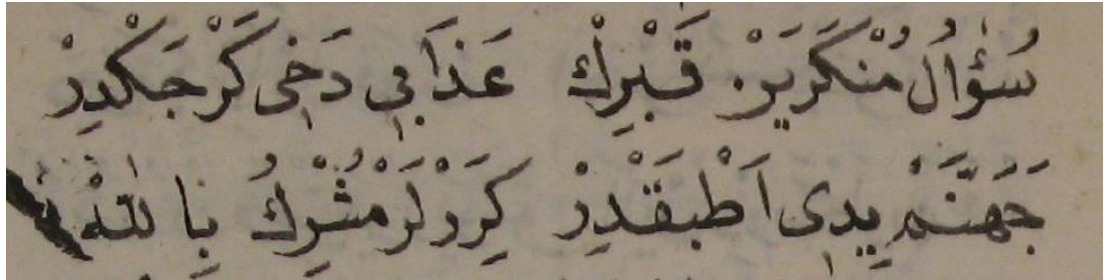 سُؤٰالُ مُنْكَرَيَنْ قَبْرِڭْ عَذَابِي دَخِى كَرْجَكْدِرْ
جَهَنَّمْ يِدِى اَطْبَقَدِرْ كِرَرْلَرْ مُشْرِكُ بِاللّٰهْ